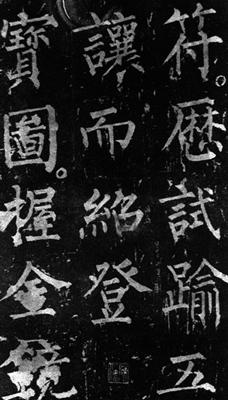 符。歷試踰五
讓而紹登
寶圖。握金鏡